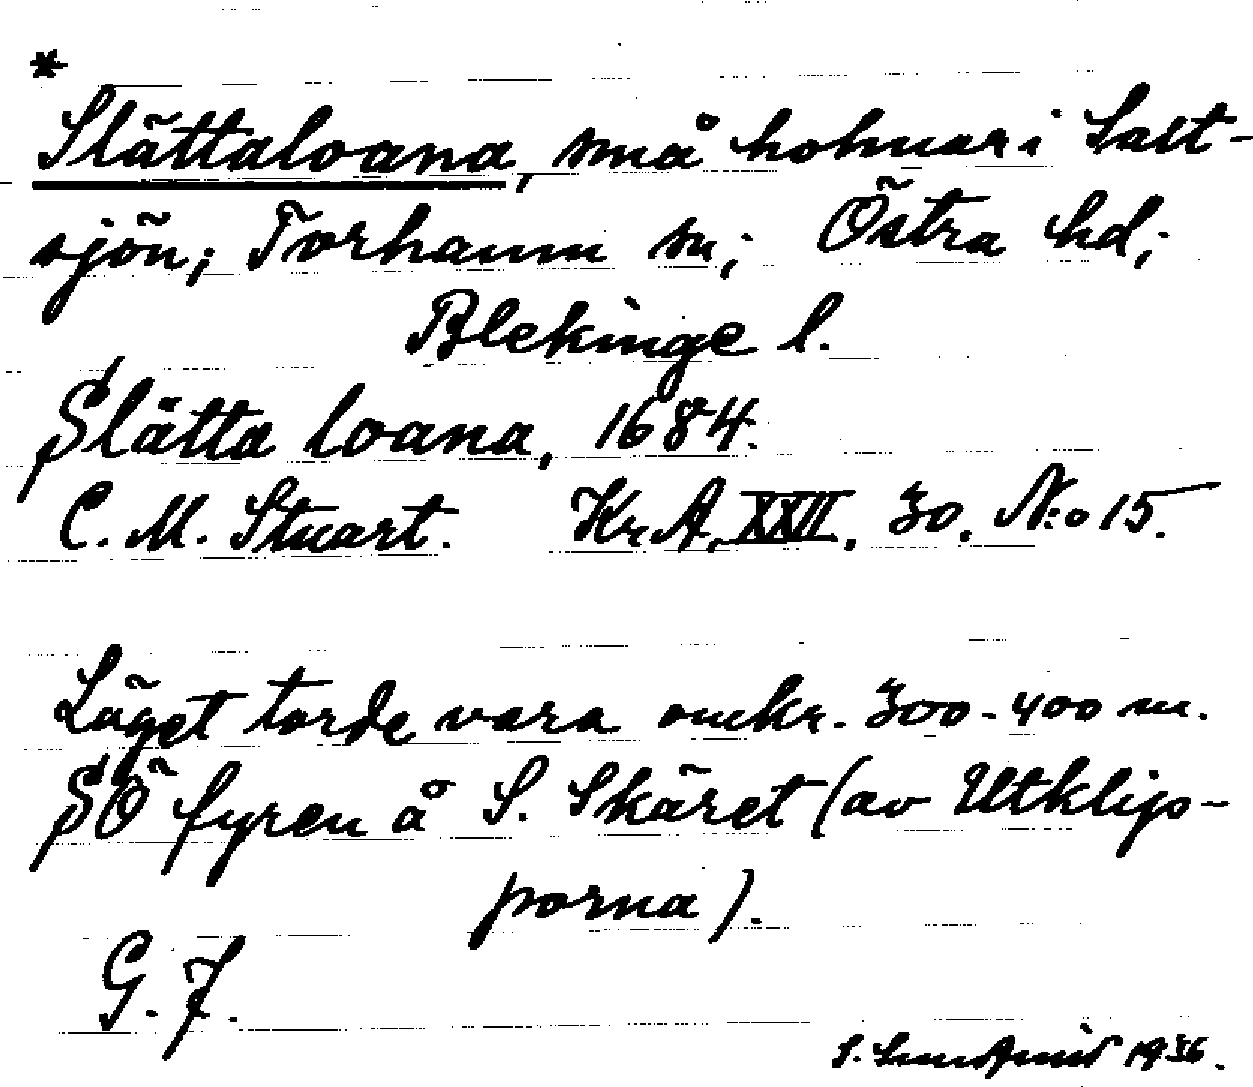 *
Slättaloana, små holmar i Salt-
sjön; Torhamn sn; Östra hd;
Blekinge l.
Slätta loana, 1684.
C. M. Stuart. Kr. A. XXII. 30. N:o 15.
Läget torde vara omkr. 300-400 m.
SÖ fyren å S. Skäret (av Utklip-
porna).
G. F.
S. 1936.